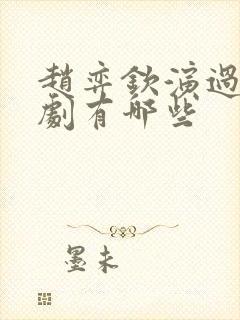 趙弈欽演過
劇有哪些
墨未